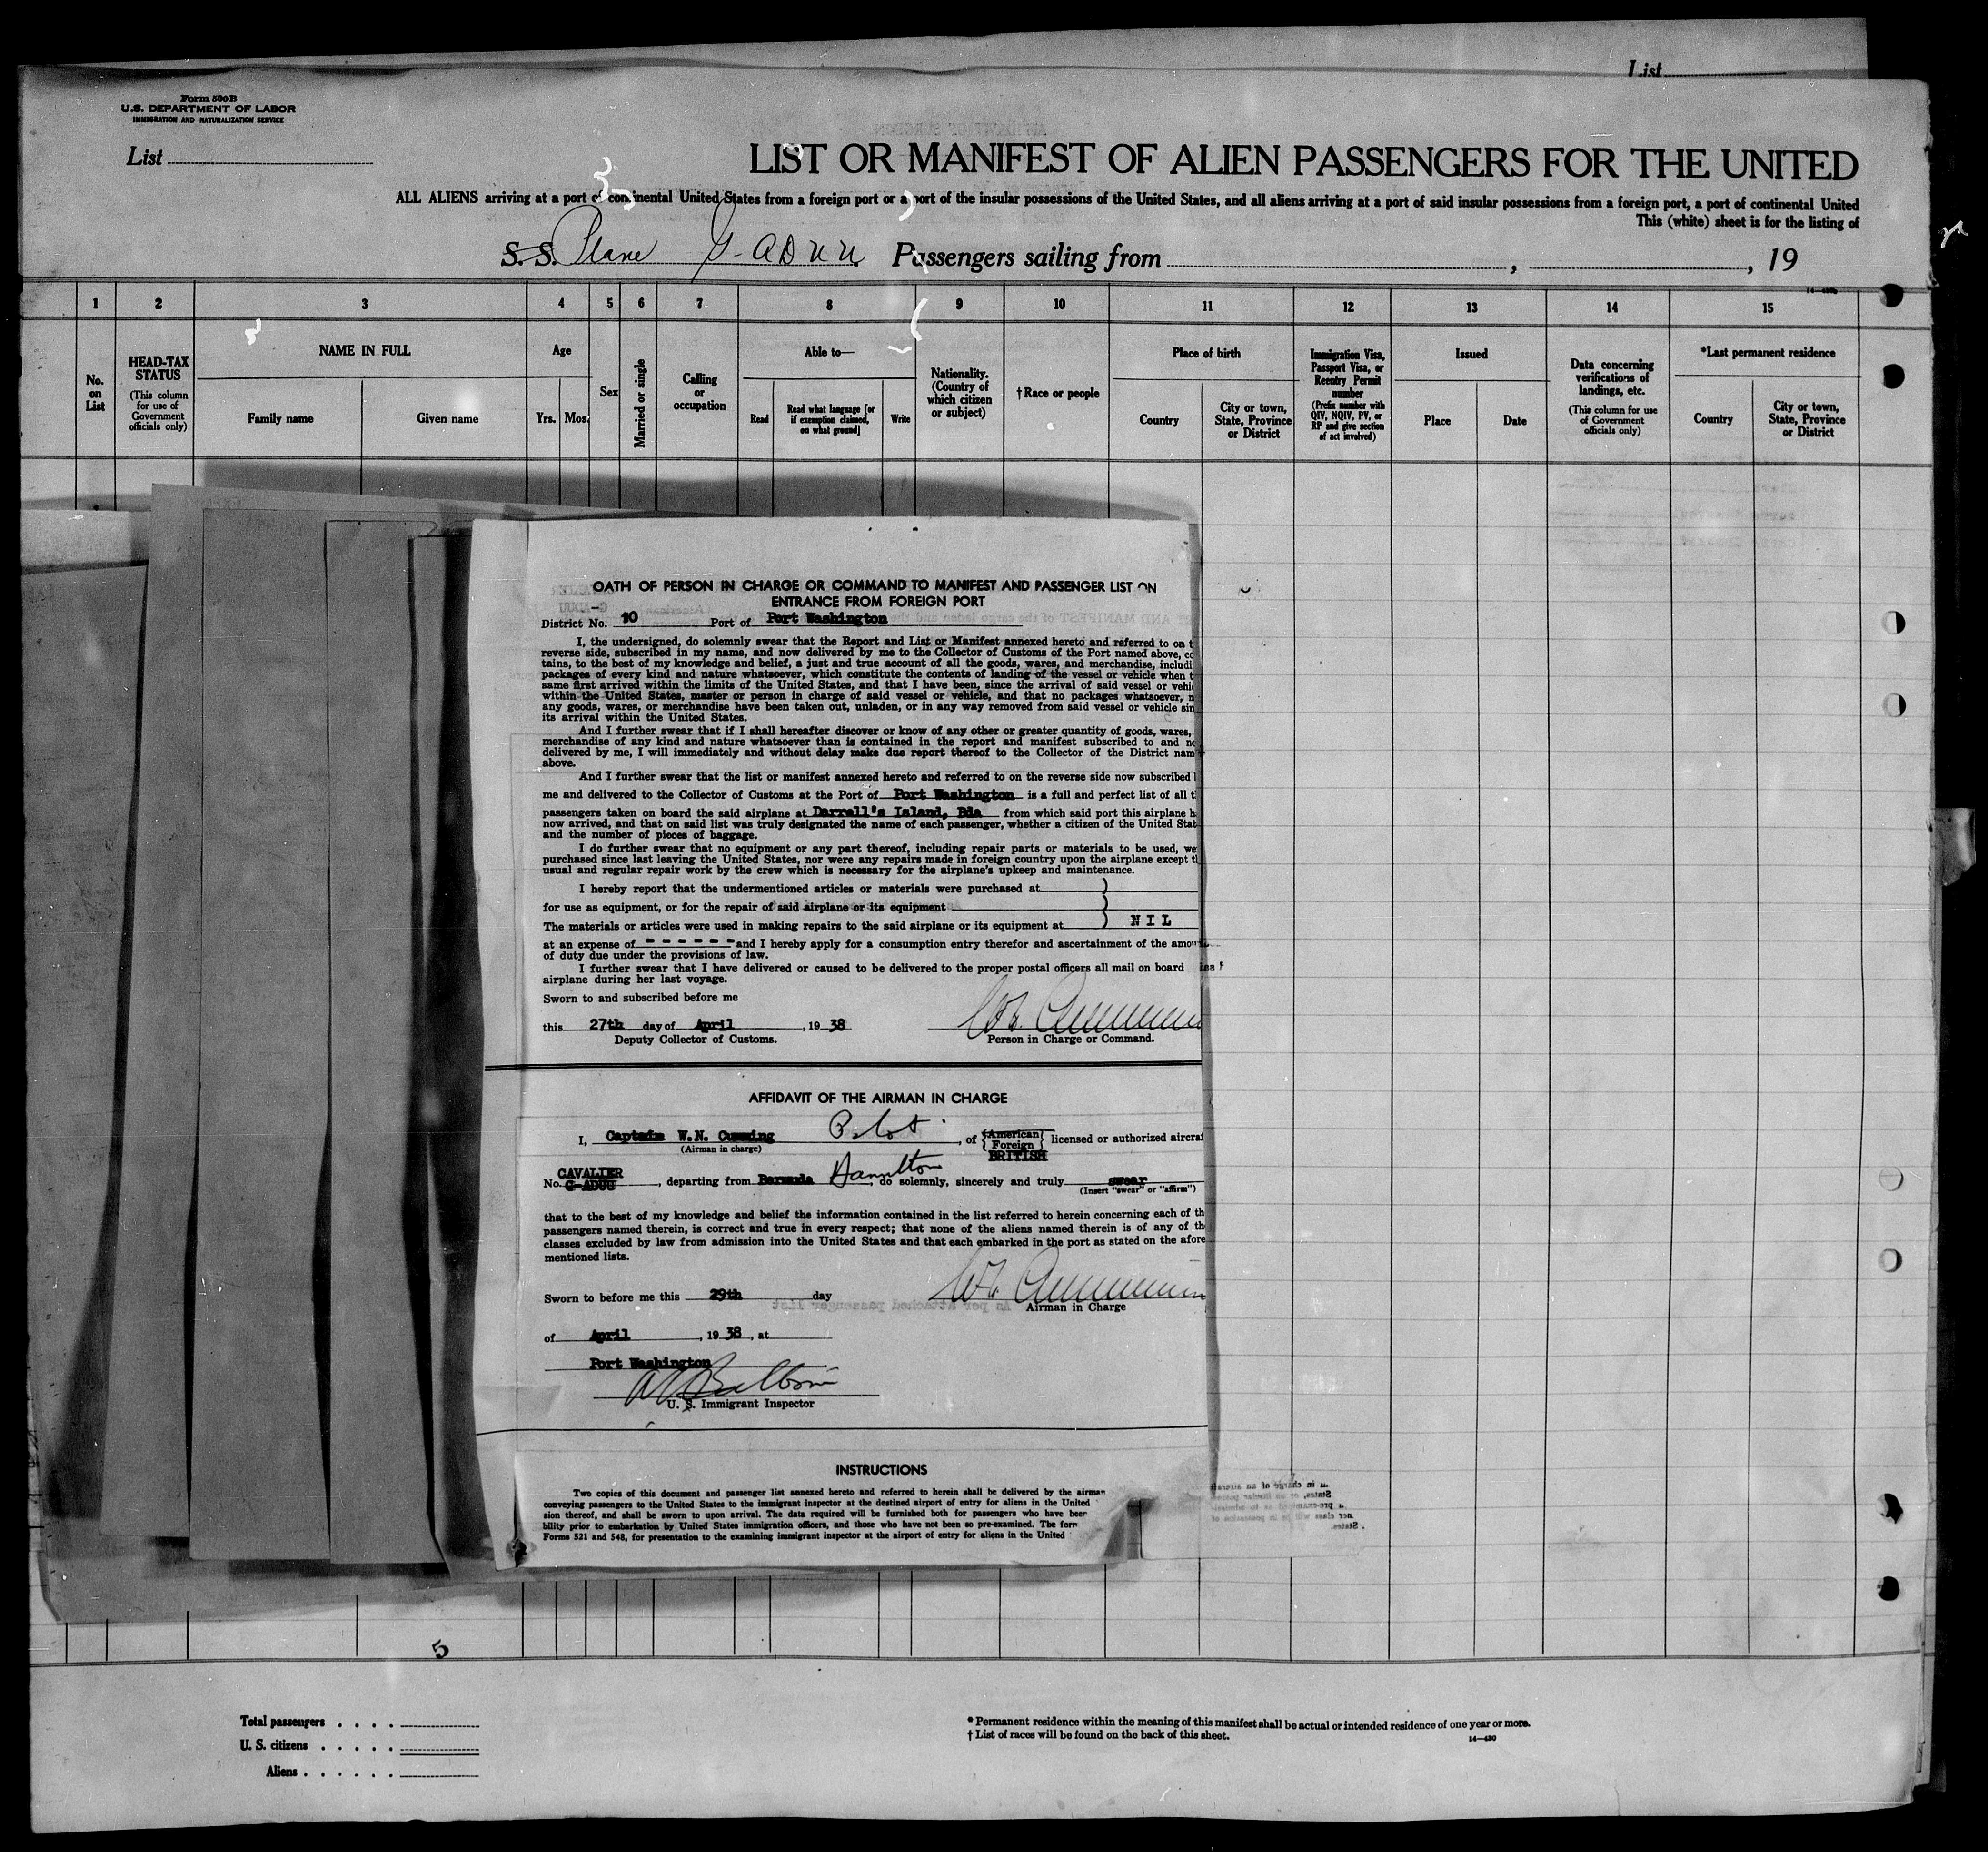 List
Form 500 B
U.S. DEPARTMENT OF LABOR
IMMIGRATION AND NATURALIZATION SERVICE
List
LIST OR MANIFEST OF ALIEN PASSENGERS FOR THE UNITED
ALL ALIENS arriving at a port of continental United States from a foreign port or a port of the insular possessions of the United States, and all aliens arriving at a port of said insular possessions from a foreign port, a port of continental United
This (white) sheet is for the listing of
S. S. Plane G-ADUU Passengers sailing from , , 19
1 2 3 4 5 6 7 8 9 10 11 12 13 14 15
No. on List
HEAD-TAX STATUS
(This column for use of Government officials only)
NAME IN FULL
Family name Given name
Age
Yrs. Mos.
Sex
Married or single
Calling or occupation
Able to—
Read
Read what language [or if exemption claimed, on what ground]
Write
Nationality. (Country of which citizen or subject)
† Race or people
Place of birth
Country
City or town, State, Province or District
Immigration Visa, Passport Visa, or Reentry Permit number
(Prefix number with QIV, NQIV, PV, or RP and give section of act involved)
Issued
Place Date
Data concerning verifications of landings, etc.
(This column for use of Government officials only)
*Last permanent residence
Country
City or town, State, Province or District
OATH OF PERSON IN CHARGE OR COMMAND TO MANIFEST AND PASSENGER LIST ON
ENTRANCE FROM FOREIGN PORT
District No. 10 Port of Port Washington
I, the undersigned, do solemnly swear that the Report and List or Manifest annexed hereto and referred to on t
reverse side, subscribed in my name, and now delivered by me to the Collector of Customs of the Port named above, co
tains, to the best of my knowledge and belief, a just and true account of all the goods, wares, and merchandise, includi
packages of every kind and nature whatsoever, which constitute the contents of landing of the vessel or vehicle when t
same first arrived within the limits of the United States, and that I have been, since the arrival of said vessel or vehic
within the United States, master or person in charge of said vessel or vehicle, and that no packages whatsoever, n
any goods, wares, or merchandise have been taken out, unladen, or in any way removed from said vessel or vehicle sin
its arrival within the United States.
And I further swear that if I shall hereafter discover or know of any other or greater quantity of goods, wares,
merchandise of any kind and nature whatsoever than is contained in the report and manifest subscribed to and no
delivered by me, I will immediately and without delay make due report thereof to the Collector of the District nam
above.
And I further swear that the list or manifest annexed hereto and referred to on the reverse side now subscribed
me and delivered to the Collector of Customs at the Port of Port Washington is a full and perfect list of all t
passengers taken on board the said airplane at Darrell's Island, Bda from which said port this airplane h
now arrived, and that on said list was truly designated the name of each passenger, whether a citizen of the United Stat
and the number of pieces of baggage.
I do further swear that no equipment or any part thereof, including repair parts or materials to be used, we
purchased since last leaving the United States, nor were any repairs made in foreign country upon the airplane except t
usual and regular repair work by the crew which is necessary for the airplane's upkeep and maintenance.
I hereby report that the undermentioned articles or materials were purchased at
for use as equipment, or for the repair of said airplane or its equipment
The materials or articles were used in making repairs to the said airplane or its equipment at NIL
at an expense of - - - - - - and I hereby apply for a consumption entry therefor and ascertainment of the amou
of duty due under the provisions of law.
I further swear that I have delivered or caused to be delivered to the proper postal officers all mail on board
airplane during her last voyage.
Sworn to and subscribed before me
this 27th day of April , 19 38
Deputy Collector of Customs. Person in Charge or Command.
AFFIDAVIT OF THE AIRMAN IN CHARGE
I, Captain W.N. Cumming Pilot , of {American Foreign} licensed or authorized aircraf
(Airman in charge) BRITISH
CAVALIER
No. G-ADUU , departing from Bermuda Hamilton , do solemnly, sincerely and truly swear
(Insert "swear" or "affirm")
that to the best of my knowledge and belief the information contained in the list referred to herein concerning each of th
passengers named therein, is correct and true in every respect; that none of the aliens named therein is of any of th
classes excluded by law from admission into the United States and that each embarked in the port as stated on the afore
mentioned lists.
Sworn to before me this 29th day
Airman in Charge
of April , 19 38 , at
Port Washington
U. S. Immigrant Inspector
INSTRUCTIONS
Two copies of this document and passenger list annexed hereto and referred to herein shall be delivered by the airman
conveying passengers to the United States to the immigrant inspector at the destined airport of entry for aliens in the United
sion thereof, and shall be sworn to upon arrival. The data required will be furnished both for passengers who have been
bility prior to embarkation by United States immigration officers, and those who have not been so pre-examined. The form
Forms 521 and 548, for presentation to the examining immigrant inspector at the airport of entry for aliens in the United
5
Total passengers . . . .
U. S. citizens . . . . .
Aliens . . . . . .
* Permanent residence within the meaning of this manifest shall be actual or intended residence of one year or more.
† List of races will be found on the back of this sheet.
14—430